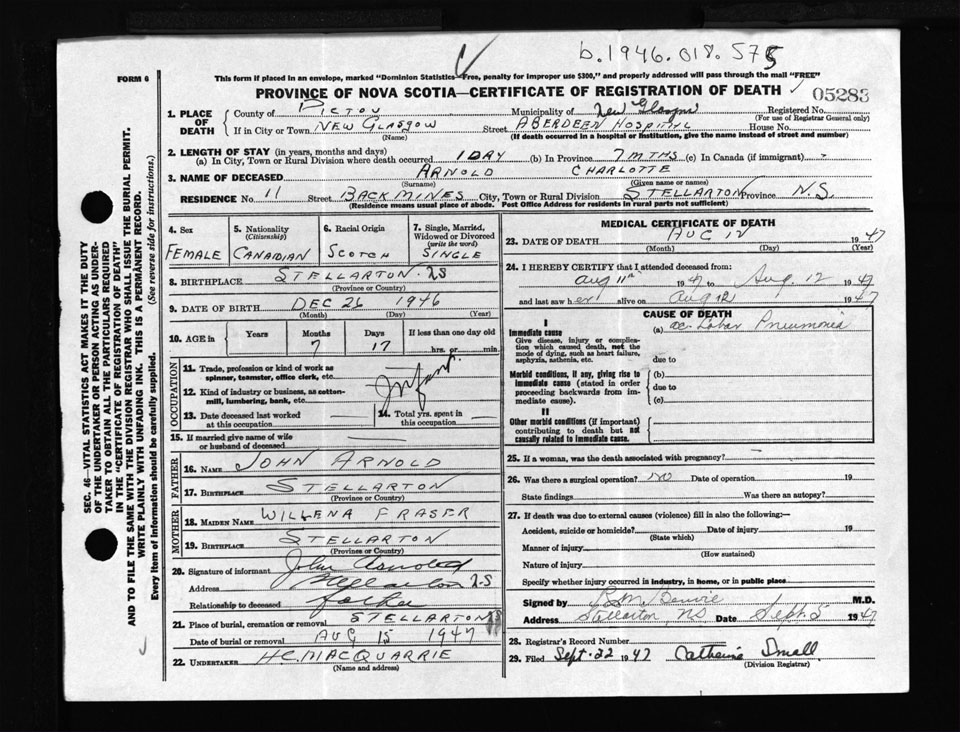 b.1946.018.575
FORM 6
This form if placed in an envelope, marked "Dominion Statistics—Free, penalty for improper use $300," and properly addressed will pass through the mail "FREE"
PROVINCE OF NOVA SCOTIA—CERTIFICATE OF REGISTRATION OF DEATH
05283
1. PLACE OF DEATH
County of PICTOU Municipality of New Glasgow Registered No.
(For use of Registrar General only)
If in City or Town NEW GLASGOW Street ABERDEEN HOSPITAL House No.
(Name) (If death occurred in a hospital or institution, give the name instead of street and number)
2. LENGTH OF STAY (in years, months and days)
(a) In City, Town or Rural Division where death occurred 1 DAY (b) In Province 7 MTHS (c) In Canada (if immigrant) -
3. NAME OF DECEASED ARNOLD CHARLOTTE
(Surname) (Given name or names)
RESIDENCE No. 11 Street BACK MINES City, Town or Rural Division STELLARTON Province N.S.
(Residence means usual place of abode. Post Office Address for residents in rural parts not sufficient)
4. Sex
FEMALE
5. Nationality
(Citizenship)
CANADIAN
6. Racial Origin
SCOTCH
7. Single, Married, Widowed or Divorced
(write the word)
SINGLE
8. BIRTHPLACE STELLARTON NS
(Province or Country)
9. DATE OF BIRTH DEC 26 1946
(Month) (Day) (Year)
10. AGE in Years Months Days If less than one day old
7 17 hrs. or min.
OCCUPATION
11. Trade, profession or kind of work as spinner, teamster, office clerk, etc.
Infant
12. Kind of industry or business, as cotton-mill, lumbering, bank, etc.
13. Date deceased last worked at this occupation
14. Total yrs. spent in this occupation
15. If married give name of wife or husband of deceased
FATHER
16. NAME JOHN ARNOLD
17. BIRTHPLACE STELLARTON
(Province or Country)
MOTHER
18. MAIDEN NAME WILLENA FRASER
19. BIRTHPLACE STELLARTON
(Province or Country)
20. Signature of informant John Arnold
Address Stellarton N.S
Relationship to deceased father
21. Place of burial, cremation or removal STELLARTON NS
Date of burial or removal AUG 15 1947
22. UNDERTAKER H.C. MACQUARRIE
(Name and address)
MEDICAL CERTIFICATE OF DEATH
23. DATE OF DEATH AUG 12 1947
(Month) (Day) (Year)
24. I HEREBY CERTIFY that I attended deceased from:
Aug 11th 1947 to Aug. 12 1947
and last saw her alive on Aug 12 1947
CAUSE OF DEATH
I
Immediate cause (a) ac. Lobar Pneumonia
Give disease, injury or complication which caused death, not the mode of dying, such as heart failure, asphyxia, asthenia, etc.
due to
Morbid conditions, if any, giving rise to immediate cause (stated in order proceeding backwards from immediate cause).
(b)
due to
(c)
II
Other morbid conditions (if important) contributing to death but not causally related to immediate cause.
25. If a woman, was the death associated with pregnancy?
26. Was there a surgical operation? no Date of operation 19
State findings Was there an autopsy?
27. If death was due to external causes (violence) fill in also the following:—
Accident, suicide or homicide? Date of injury 19
(State which)
Manner of injury
(How sustained)
Nature of injury
Specify whether injury occurred in industry, in home, or in public place
Signed by M.D.
Address Stellarton, NS Date Sept. 5 1947
28. Registrar's Record Number
29. Filed Sept. 22 1947 Catherine Small
(Division Registrar)
SEC. 46—VITAL STATISTICS ACT MAKES IT THE DUTY
OF THE UNDERTAKER OR PERSON ACTING AS UNDER-
TAKER TO OBTAIN ALL THE PARTICULARS REQUIRED
IN THE "CERTIFICATE OF REGISTRATION OF DEATH"
AND TO FILE THE SAME WITH THE DIVISION REGISTRAR WHO SHALL ISSUE THE BURIAL PERMIT.
WRITE PLAINLY WITH UNFADING INK. THIS IS A PERMANENT RECORD.
Every item of information should be carefully supplied. (See reverse side for instructions.)